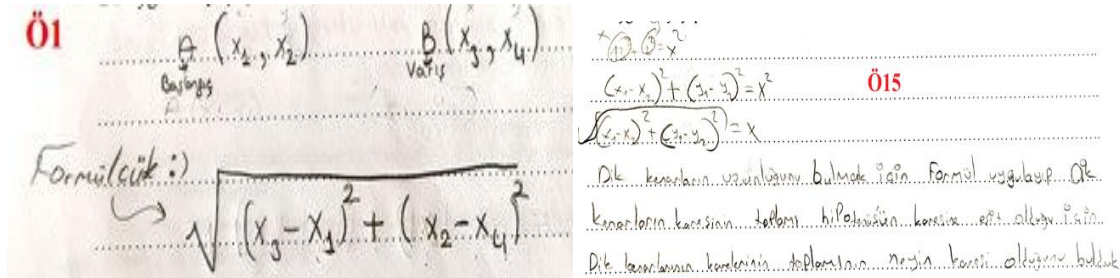 Ö1
A (x₁, x₂) B (x₃, x₄)
Başlangıç Varış
Formülcük :)
√(x₃ - x₁)² + (x₂ - x₄)²
Ö15
(x₁ - x₂)² + (y₁ - y₂)² = x²
√(x₁ - x₂)² + (y₁ - y₂)² = x
Dik kenarların uzunluğunu bulmak için Formül uygulayıp Dik
kenarların karesinin toplamı hipotenüsün karesine eşit olduğu için
Dik kenarlarının karelerinin toplamının neyin karesi olduğunu bulduk